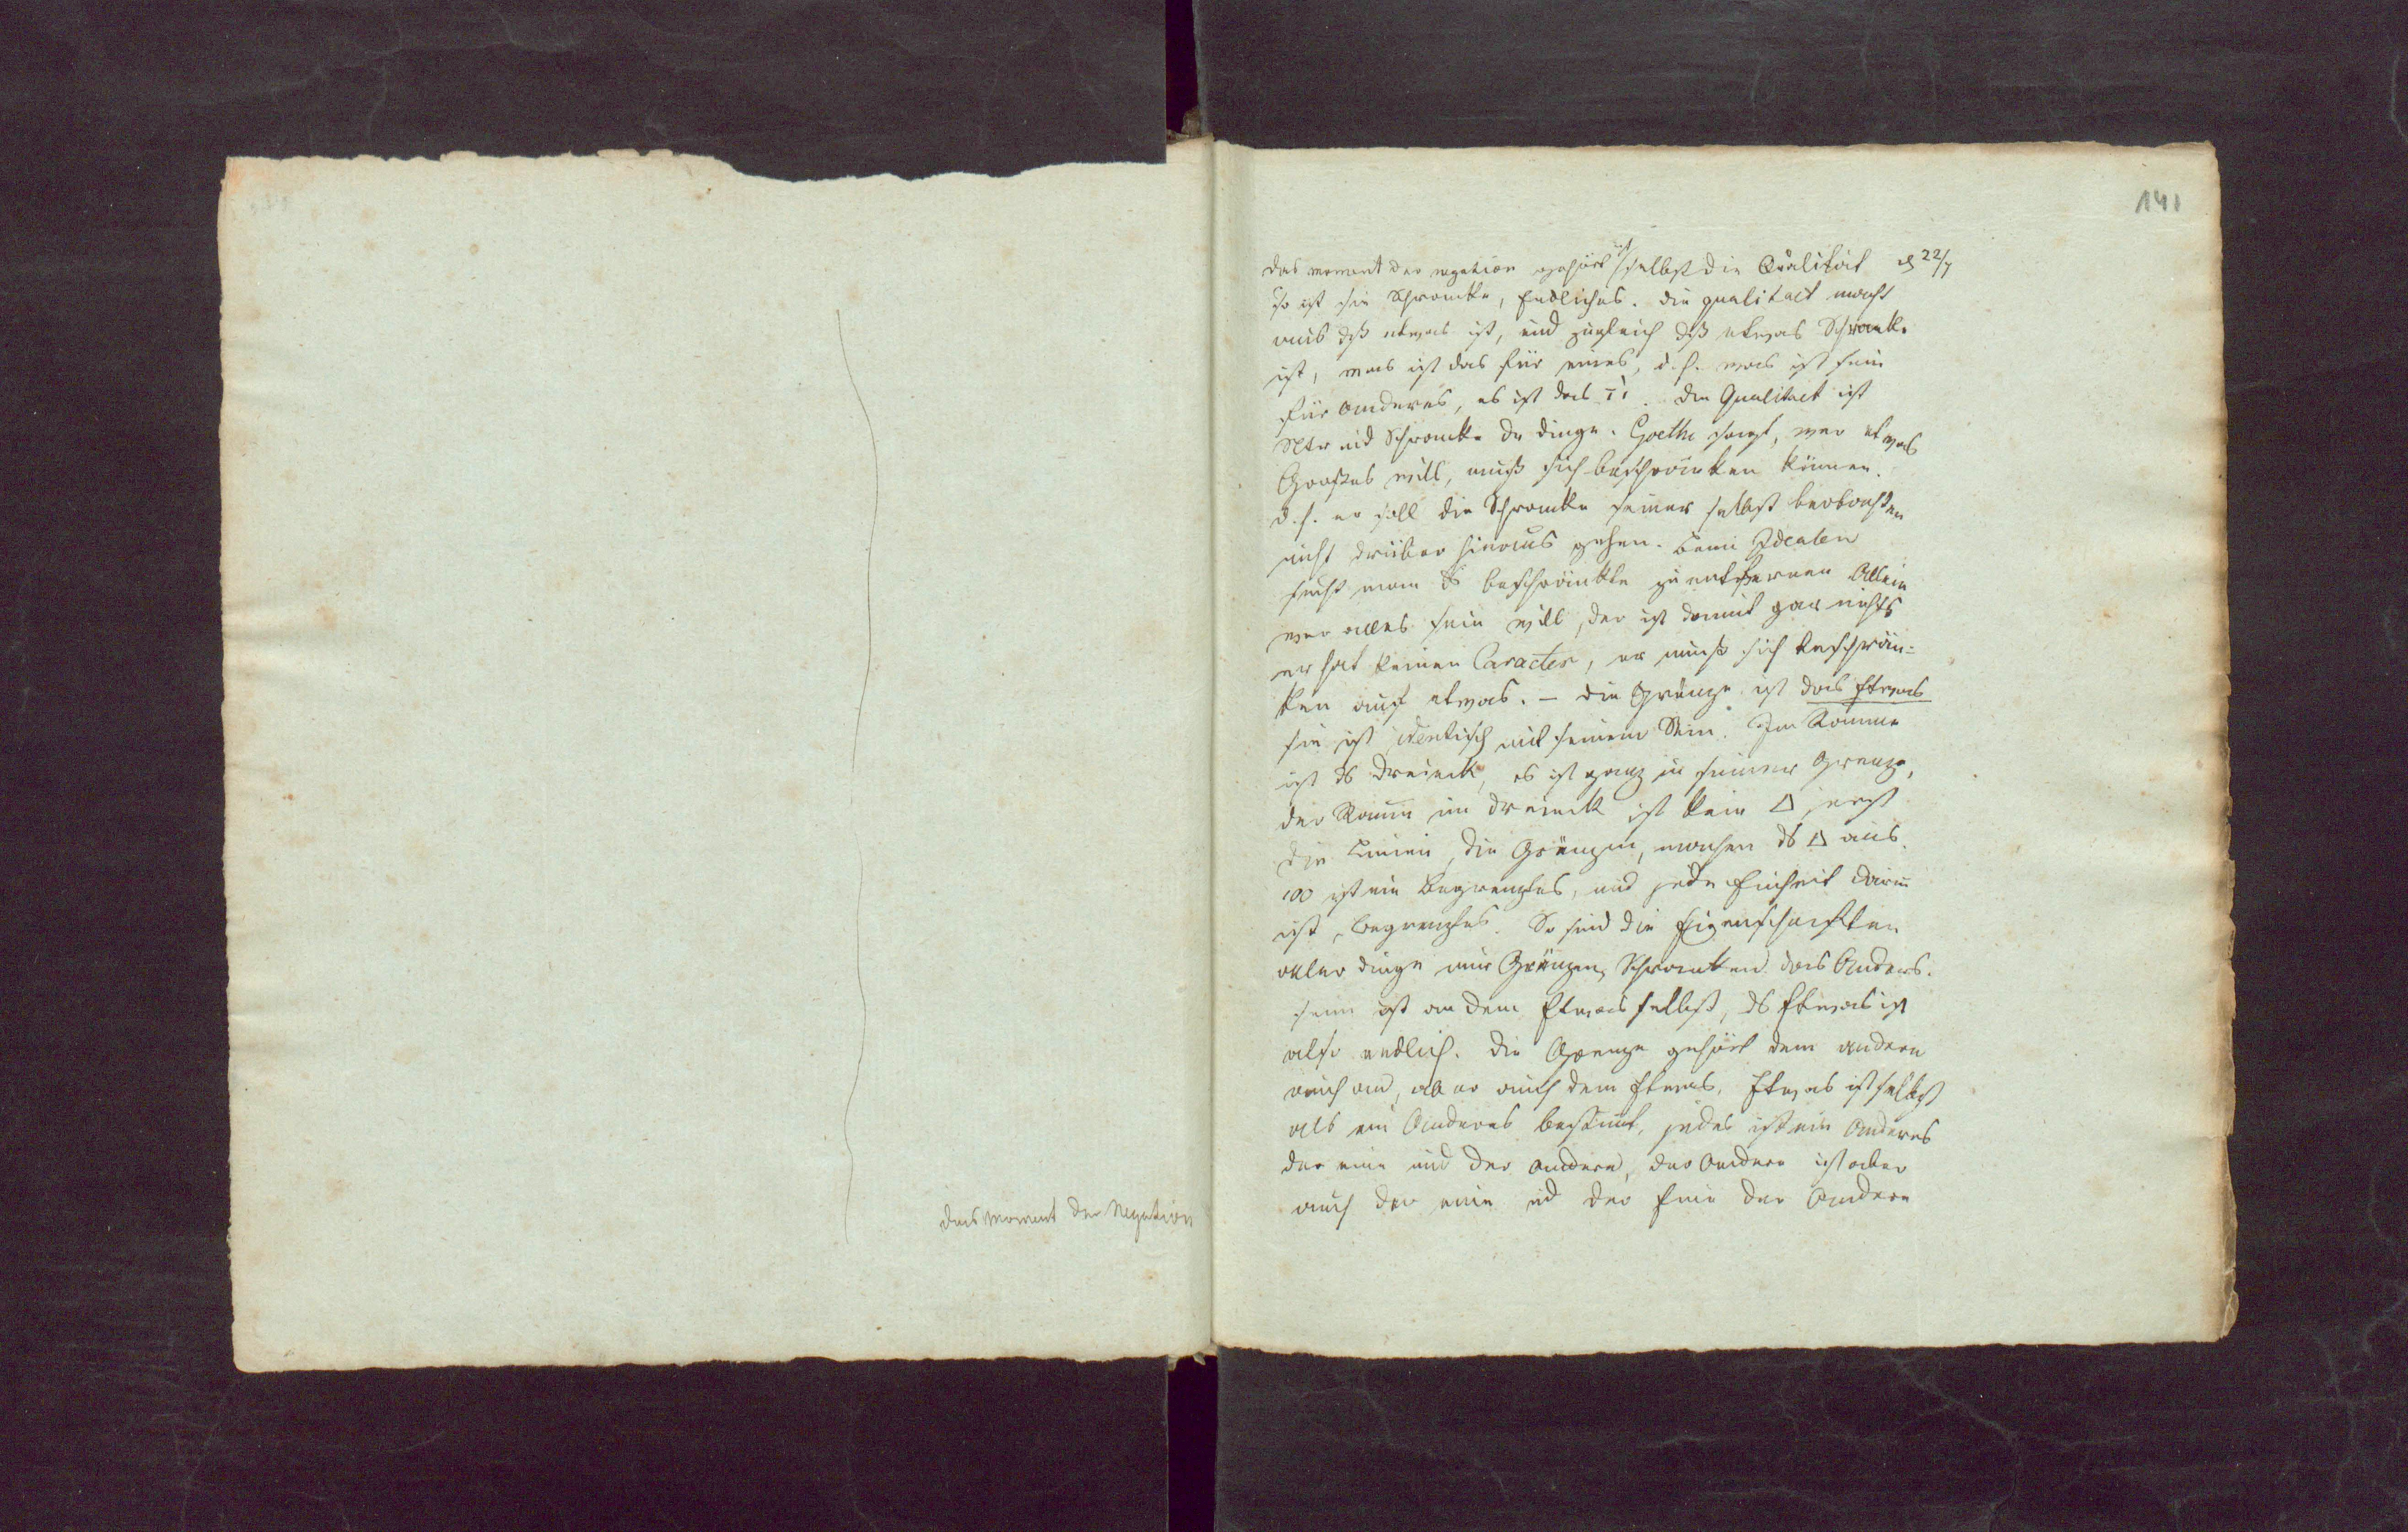 das Moment der Negation
141
das moment der negation gehört ist selbst die Qualität 22/7
So ist sie Schrancke, Endliches. die qualitaet macht
aus dß etwas ist, und zugleich dß etwas Schrank.
ist, was ist das für eines, d.h. was ist sein
für anderes, es ist das τὶ. die Qualitaet ist
und Schrancke der dinge. Goethe sagt, wer etwas
Großes will, muß sich beschräncken können.
d.h. er soll die Schrancke seiner selbst beobachten
nicht drüber hinaus gehen. beim Idealen
sucht man ds beschränkte zu entfernen Allein
wer alles sein will, der ist damit gar nichts
er hat keinen Caracter, er muß sich beschrän-
ken auf etwas. – die Gränze ist das Etwas
sie ist identisch mit seinem Sein. Im Raume
ist ds dreieck, es ist ganz in seiner Grenze,
der Raum im dreieck ist kein △, erst
die Linien, die Gränzen, machen ds △ aus.
100 ist ein Begrenztes, und jede Einheit darin
ist begrenztes. So sind die Eigenschaften
aller dinge nur Gränzen, Schrancken das Anders.
sein ist an dem Etwas selbst, ds Etwas ist
also endlich. die Grenze gehört dem andern
auch an, aber auch dem Etwas. Etwas ist selbst
als ein Anderes bestimt, jedes ist ein Anderes
der eine und der andere, der Andere ist aber
auch der eine ud der Eine der Andere